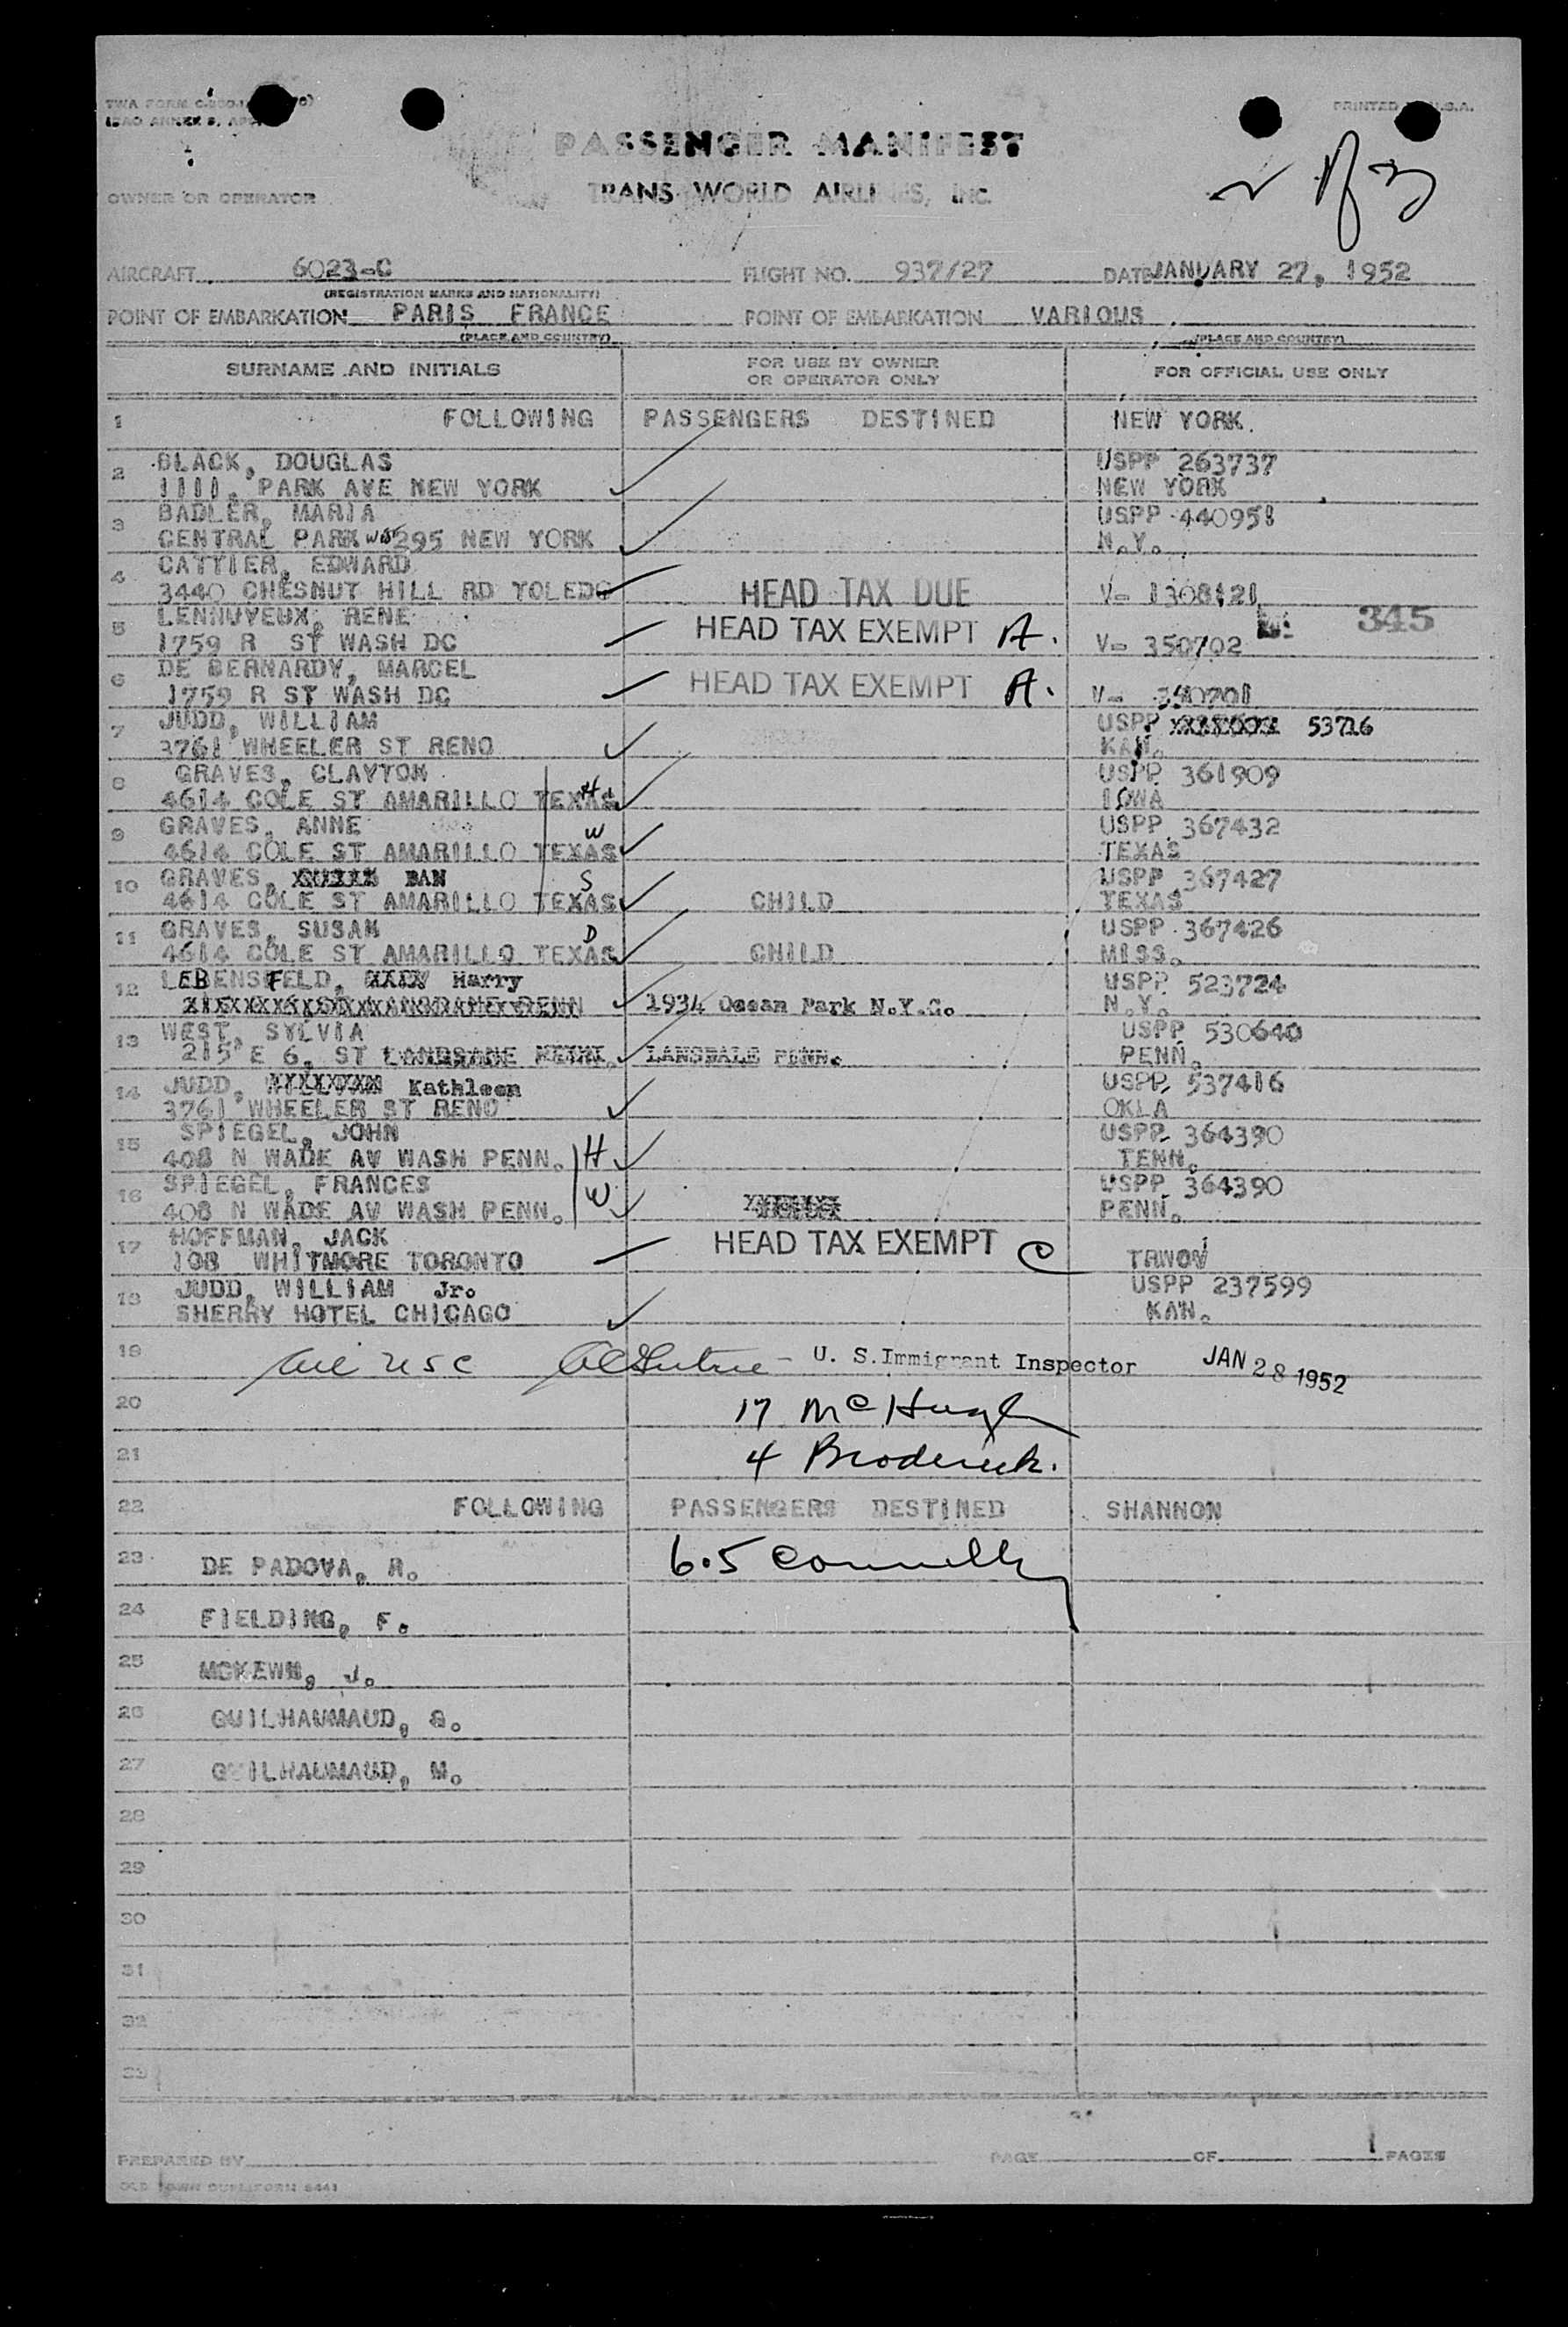 TWA FORM
PRINTED U.S.A.
PASSENGER MANIFEST
OWNER OR OPERATOR
TRANS WORLD AIRLINES, INC.
AIRCRAFT 6023-C FLIGHT NO. 937/27 DATE JANUARY 27, 1952
(REGISTRATION MARKS AND NATIONALITY)
POINT OF EMBARKATION PARIS FRANCE POINT OF EMBARKATION VARIOUS
(PLACE AND COUNTRY) (PLACE AND COUNTRY)
SURNAME AND INITIALS FOR USE BY OWNER OR OPERATOR ONLY FOR OFFICIAL USE ONLY
1 FOLLOWING PASSENGERS DESTINED NEW YORK.
2 BLACK, DOUGLAS USPP 263737
1111, PARK AVE NEW YORK NEW YORK
3 BADLER, MARIA USPP 440951
CENTRAL PARK 295 NEW YORK N.Y.
4 CATTIER, EDWARD
3440 CHESNUT HILL RD TOLEDO HEAD TAX DUE V- 1308121
5 LENNUYEUX, RENE HEAD TAX EXEMPT A. 345
1759 R ST WASH DC V- 350702
6 DE BERNARDY, MARCEL HEAD TAX EXEMPT A.
1759 R ST WASH DC V- 350701
7 JUDD, WILLIAM USPP 53716
3761 WHEELER ST RENO KAN.
8 GRAVES, CLAYTON H USPP 361909
4614 COLE ST AMARILLO TEXAS IOWA
9 GRAVES, ANNE W USPP 367432
4614 COLE ST AMARILLO TEXAS TEXAS
10 GRAVES, DAN S USPP 367427
4614 COLE ST AMARILLO TEXAS CHILD TEXAS
11 GRAVES, SUSAN D USPP 367426
4614 COLE ST AMARILLO TEXAS CHILD MISS.
12 LEBENSFELD, Harry USPP 523724
1934 Ocean Park N.Y.C. N.Y.
13 WEST, SYLVIA USPP 530640
215 E 6, ST LANSDALE PENN. PENN.
14 JUDD, Kathleen USPP 537416
3761 WHEELER ST RENO OKLA
15 SPIEGEL, JOHN H USPP 364390
408 N WADE AV WASH PENN. TENN.
16 SPIEGEL, FRANCES W USPP 364390
408 N WADE AV WASH PENN. PENN.
17 HOFFMAN, JACK HEAD TAX EXEMPT C
108 WHITMORE TORONTO TRWOV
18 JUDD, WILLIAM Jr. USPP 237599
SHERRY HOTEL CHICAGO KAN.
19 U. S. Immigrant Inspector JAN 28 1952
20 17 McHugh
21 4 Broderick.
22 FOLLOWING PASSENGERS DESTINED SHANNON
23 DE PADOVA, R. 6.5 Connelly
24 FIELDING, F.
25 MCKEWN, J.
26 GUILHAUMAUD, G.
27 GUILHAUMAUD, M.
28
29
30
31
32
33
PREPARED BY PAGE OF 1 PAGES